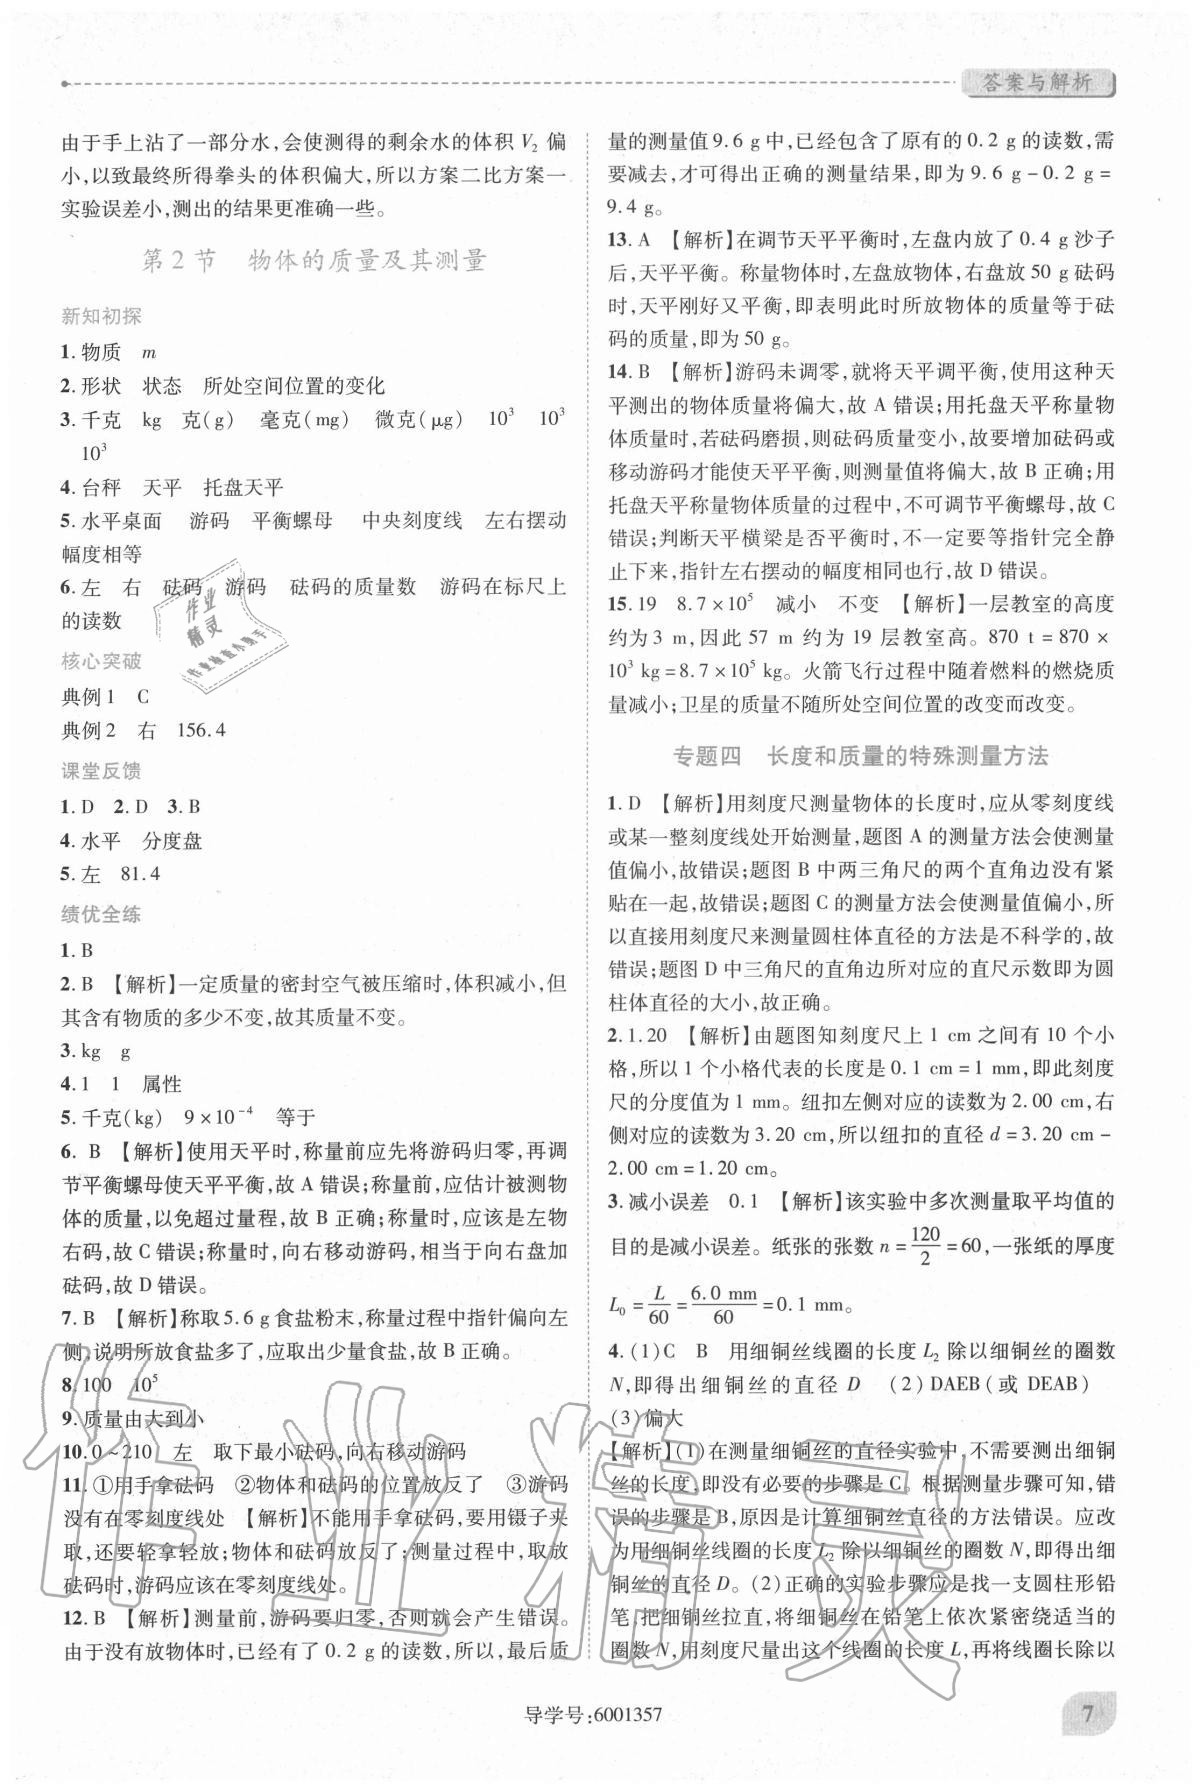 答案与解析
由于手上沾了一部分水,会使测得的剩余水的体积 V₂ 偏
小,以致最终所得拳头的体积偏大,所以方案二比方案一
实验误差小,测出的结果更准确一些。
第 2 节　物体的质量及其测量
新知初探
1. 物质　m
2. 形状　状态　所处空间位置的变化
3. 千克　kg　克(g)　毫克(mg)　微克(μg)　10³　10³
10³
4. 台秤　天平　托盘天平
5. 水平桌面　游码　平衡螺母　中央刻度线　左右摆动
幅度相等
6. 左　右　砝码　游码　砝码的质量数　游码在标尺上
的读数
核心突破
典例 1　C
典例 2　右　156.4
课堂反馈
1. D　2. D　3. B
4. 水平　分度盘
5. 左　81.4
绩优全练
1. B
2. B　【解析】一定质量的密封空气被压缩时,体积减小,但
其含有物质的多少不变,故其质量不变。
3. kg　g
4. 1　1　属性
5. 千克(kg)　9×10⁻⁴　等于
6. B　【解析】使用天平时,称量前应先将游码归零,再调
节平衡螺母使天平平衡,故 A 错误;称量前,应估计被测物
体的质量,以免超过量程,故 B 正确;称量时,应该是左物
右码,故 C 错误;称量时,向右移动游码,相当于向右盘加
砝码,故 D 错误。
7. B　【解析】称取 5.6 g 食盐粉末,称量过程中指针偏向左
侧,说明所放食盐多了,应取出少量食盐,故 B 正确。
8. 100　10⁵
9. 质量由大到小
10. 0~210　左　取下最小砝码,向右移动游码
11. ①用手拿砝码　②物体和砝码的位置放反了　③游码
没有在零刻度线处　【解析】不能用手拿砝码,要用镊子夹
取,还要轻拿轻放;物体和砝码放反了;测量过程中,取放
砝码时,游码应该在零刻度线处。
12. B　【解析】测量前,游码要归零,否则就会产生错误。
由于没有放物体时,已经有了 0.2 g 的读数,所以,最后质
量的测量值 9.6 g 中,已经包含了原有的 0.2 g 的读数,需
要减去,才可得出正确的测量结果,即为 9.6 g-0.2 g=
9.4 g。
13. A　【解析】在调节天平平衡时,左盘内放了 0.4 g 沙子
后,天平平衡。称量物体时,左盘放物体,右盘放 50 g 砝码
时,天平刚好又平衡,即表明此时所放物体的质量等于砝
码的质量,即为 50 g。
14. B　【解析】游码未调零,就将天平调平衡,使用这种天
平测出的物体质量将偏大,故 A 错误;用托盘天平称量物
体质量时,若砝码磨损,则砝码质量变小,故要增加砝码或
移动游码才能使天平平衡,则测量值将偏大,故 B 正确;用
托盘天平称量物体质量的过程中,不可调节平衡螺母,故 C
错误;判断天平横梁是否平衡时,不一定要等指针完全静
止下来,指针左右摆动的幅度相同也行,故 D 错误。
15. 19　8.7×10⁵　减小　不变　【解析】一层教室的高度
约为 3 m,因此 57 m 约为 19 层教室高。870 t=870×
10³ kg=8.7×10⁵ kg。火箭飞行过程中随着燃料的燃烧质
量减小;卫星的质量不随所处空间位置的改变而改变。
专题四　长度和质量的特殊测量方法
1. D　【解析】用刻度尺测量物体的长度时,应从零刻度线
或某一整刻度线处开始测量,题图 A 的测量方法会使测量
值偏小,故错误;题图 B 中两三角尺的两个直角边没有紧
贴在一起,故错误;题图 C 的测量方法会使测量值偏小,所
以直接用刻度尺来测量圆柱体直径的方法是不科学的,故
错误;题图 D 中三角尺的直角边所对应的直尺示数即为圆
柱体直径的大小,故正确。
2. 1.20　【解析】由题图知刻度尺上 1 cm 之间有 10 个小
格,所以 1 个小格代表的长度是 0.1 cm=1 mm,即此刻度
尺的分度值为 1 mm。纽扣左侧对应的读数为 2.00 cm,右
侧对应的读数为 3.20 cm,所以纽扣的直径 d=3.20 cm-
2.00 cm=1.20 cm。
3. 减小误差　0.1　【解析】该实验中多次测量取平均值的
目的是减小误差。纸张的张数 n=120/2=60,一张纸的厚度
L₀=L/60=6.0 mm/60=0.1 mm。
4. (1)C　B　用细铜丝线圈的长度 L₂ 除以细铜丝的圈数
N,即得出细铜丝的直径 D　(2) DAEB(或 DEAB)
(3)偏大
【解析】(1)在测量细铜丝的直径实验中,不需要测出细铜
丝的长度,即没有必要的步骤是 C。根据测量步骤可知,错
误的步骤是 B,原因是计算细铜丝直径的方法错误。应改
为用细铜丝线圈的长度 L₂ 除以细铜丝的圈数 N,即得出细
铜丝的直径 D。(2)正确的实验步骤应是找一支圆柱形铅
笔,把细铜丝拉直,将细铜丝在铅笔上依次紧密绕适当的
圈数 N,用刻度尺量出这个线圈的长度 L,再将线圈长除以
导学号:6001357
7
作业
精灵
作业检查小助手
作业精灵